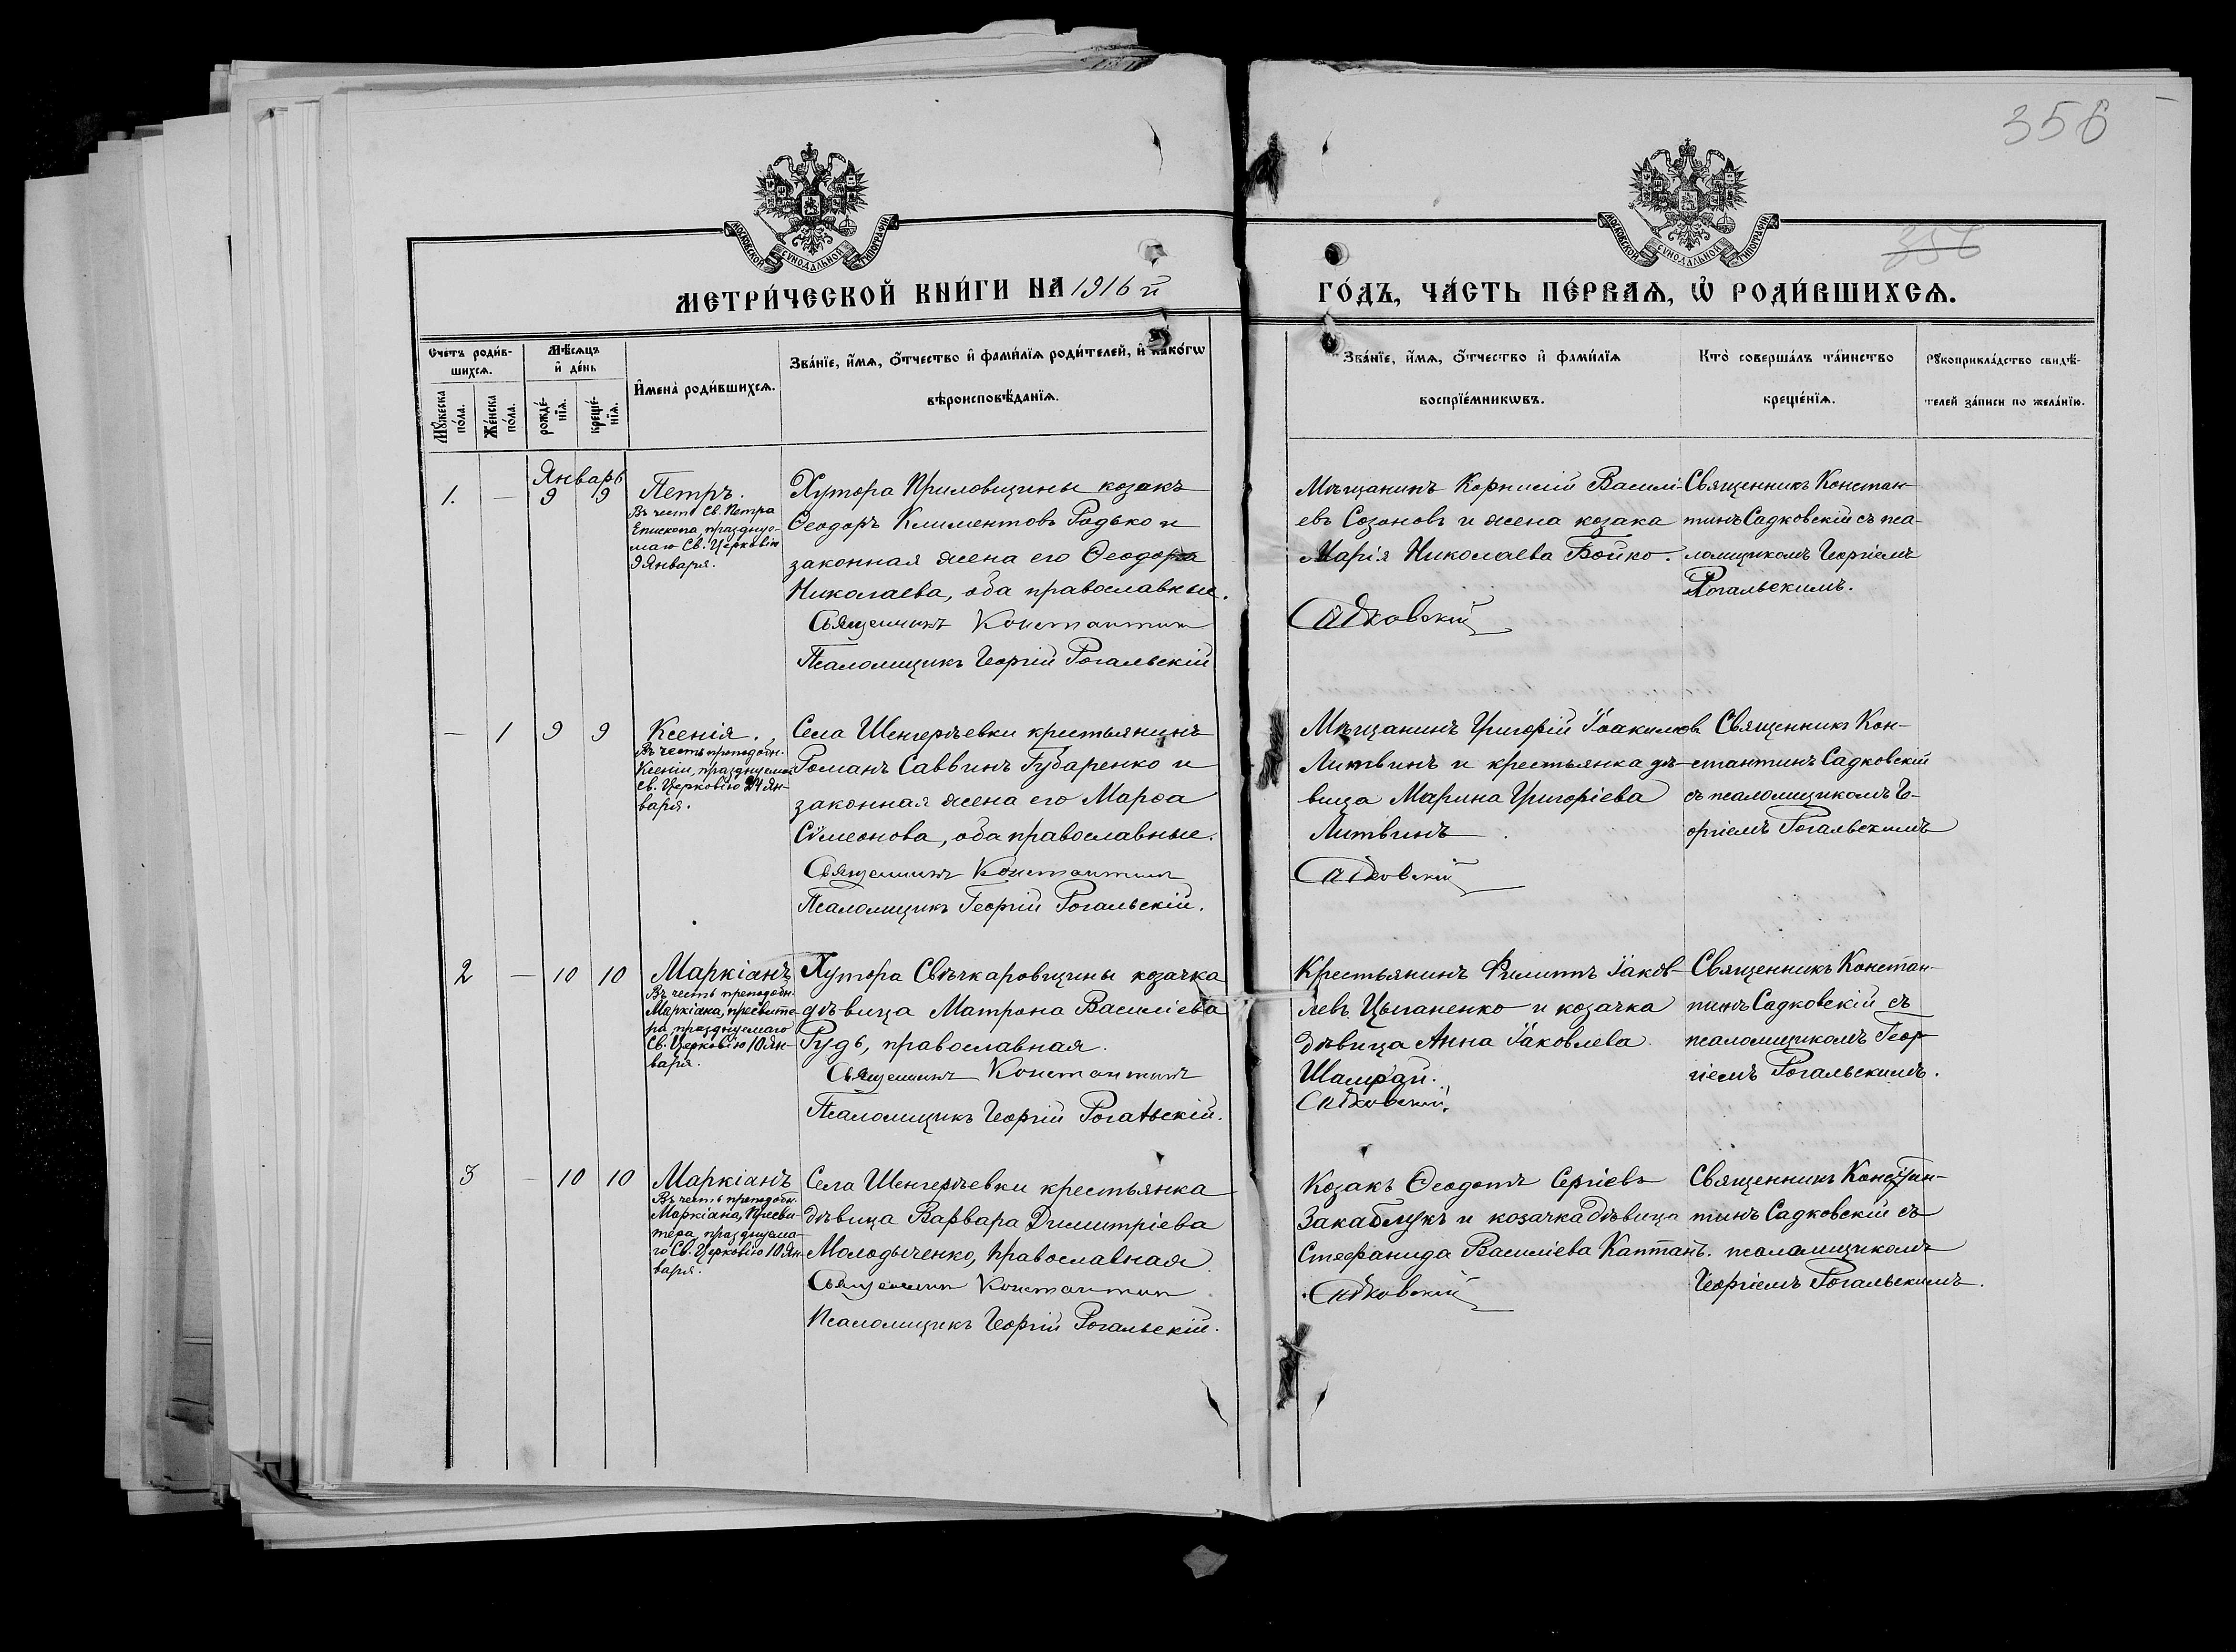 358
МОСКОВСКОЙ СѴНОДАЛЬНОЙ ТИПОГРАФІИ
МОСКОВСКОЙ СѴНОДАЛЬНОЙ ТИПОГРАФІИ
356
МЕТРИ́ЧЕСКОЙ КНИ́ГИ НА 1916 й
ГО́ДЪ, ЧА́СТЬ ПЕ́РВАѦ, Ѽ РОДИ́ВШИХСѦ.
Счетъ роди́в-
шихсѧ.
Мꙋ́жеска по́ла.
Же́нска по́ла.
Мѣ́сѧцъ
и҆ де́нь
рожде́-
нїѧ.
креще́-
нїѧ.
И҆мена̀ роди́вшихсѧ.
Зва́нїе, и҆́мѧ, ѻ҆́тчество и҆ фами́лїѧ роди́телей, и҆ како́гѡ
вѣроисповѣ́данїѧ.
Зва́нїе, и҆́мѧ, ѻ҆́тчество и҆ фами́лїѧ
воспрїе́мникѡвъ.
Кто̀ соверша́лъ та́инство
креще́нїѧ.
Рꙋкоприкла́дство свидѣ́-
телей за́писи по жела́нїю.
Январь
1.
—
9
9
Петръ.
Въ честь Св. Петра
Епископа, празднуе-
маго Св. Церковію
9 Января.
Хутора Криловщины козакъ
Ѳеодоръ Климентовъ Родько и
законная жена его Ѳеодора
Николаева, оба православные.
Священникъ Константин
Псаломщикъ Георгій Рогальскій
Мѣщанинъ Корнилій Василі-
евъ Созоновъ и жена козака
Марія Николаева Бойко.
Садковскій
Священникъ Констан-
тинъ Садковскій съ пса-
ломщикомъ Георгіемъ
Рогальскимъ.
—
1
9
9
Ксенія.
Въ честь преподобн.
Ксеніи, празднуемой
Св. Церковію 24 Ян-
варя.
Села Шенгерѣевки крестьянинъ
Романъ Саввинъ Губаренко и
законная жена его Марѳа
Сѵмеонова, оба православные.
Священникъ Константин
Псаломщикъ Георгій Рогальскій.
Мѣщанинъ Григорій Іоакимов
Литвинъ и крестьянка дѣ-
вица Марина Григоріева
Литвинъ
Садковскій
Священникъ Кон-
стантинъ Садковскій
съ псаломщикомъ Ге-
оргіемъ Рогальскимъ
2
—
10
10
Маркіанъ
Въ честь преподобн.
Маркіана, пресвите-
ра, празднуемаго
Св. Церковію 10 Ян-
варя.
Хутора Свѣчкаровщины козачка
дѣвица Матрона Василіева
Рудь, православная.
Священникъ Константинъ
Псаломщикъ Георгій Рогальскій.
Крестьянинъ Филиппъ Іаков-
левъ Цыганенко и козачка
дѣвица Анна Іаковлева
Шамрай.
Садковскій.
Священникъ Констан-
тинъ Садковскій съ
псаломщикомъ Геор-
гіемъ Рогальскимъ.
3
—
10
10
Маркіанъ
Въ честь преподобн.
Маркіана, Пресви-
тера, празднуема-
го Св. Церковію 10 Ян-
варя.
Села Шенгерѣевки крестьянка
дѣвица Варвара Димитріева
Молодыченко, православная
Священникъ Константин
Псаломщикъ Георгій Рогальскій.
Козакъ Ѳеодотъ Сергіевъ
Закаблукъ и козачка дѣвица
Стефанида Василіева Каптанъ.
Садковскій
Священникъ Констан-
тинъ Садковскій съ
псаломщикомъ
Георгіемъ Рогальскимъ.